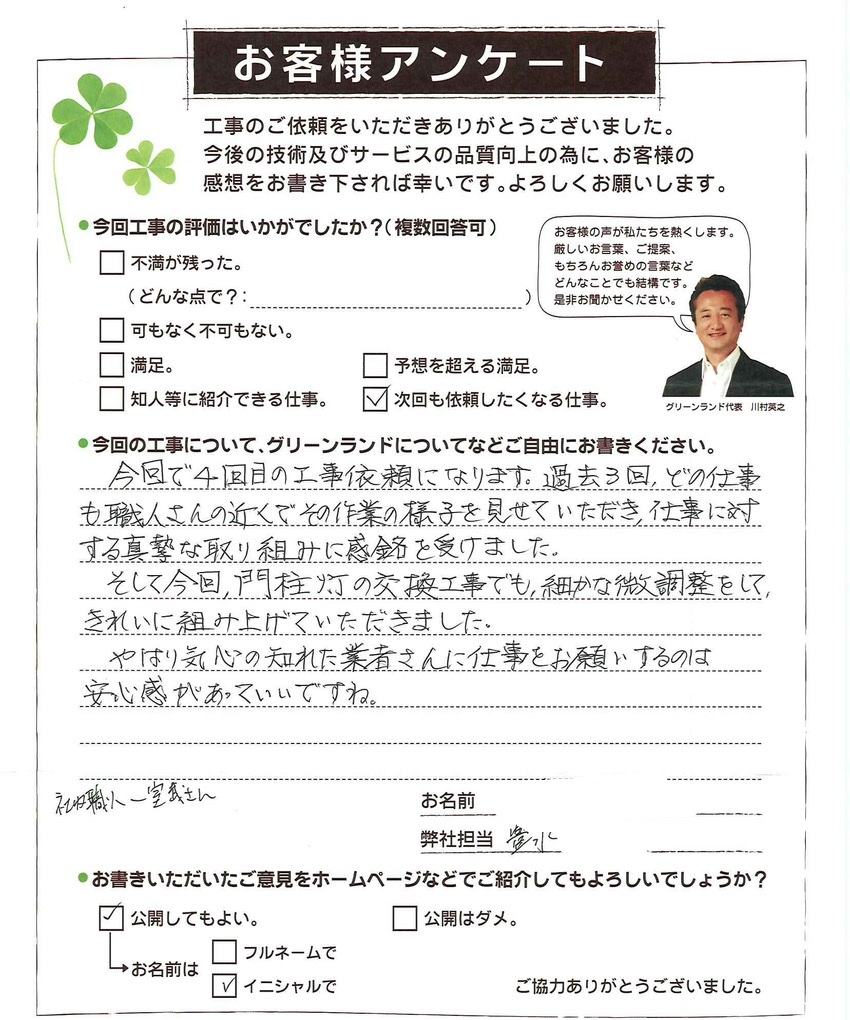 お客様アンケート
工事のご依頼をいただきありがとうございました。
今後の技術及びサービスの品質向上の為に、お客様の
感想をお書き下されば幸いです。よろしくお願いします。
●今回工事の評価はいかがでしたか?(複数回答可)
不満が残った。
(どんな点で?: )
可もなく不可もない。
満足。 予想を超える満足。
知人等に紹介できる仕事。 次回も依頼したくなる仕事。
お客様の声が私たちを熱くします。
厳しいお言葉、ご提案、
もちろんお誉めの言葉など
どんなことでも結構です。
是非お聞かせください。
グリーンランド代表 川村英之
●今回の工事について、グリーンランドについてなどご自由にお書きください。
今回で4回目の工事依頼になります。過去3回, どの仕事
も職人さんの近くでその作業の様子を見せていただき, 仕事に対
する真摯な取り組みに感銘を受けました。
そして今回, 門柱灯の交換工事でも, 細かな微調整をして,
きれいに組み上げていただきました.
やはり気心の知れた業者さんに仕事をお願いするのは
安心感があっていいですね。
社内職人 さん
お名前
弊社担当
●お書きいただいたご意見をホームページなどでご紹介してもよろしいでしょうか?
公開してもよい。 公開はダメ。
お名前は フルネームで
イニシャルで
ご協力ありがとうございました。